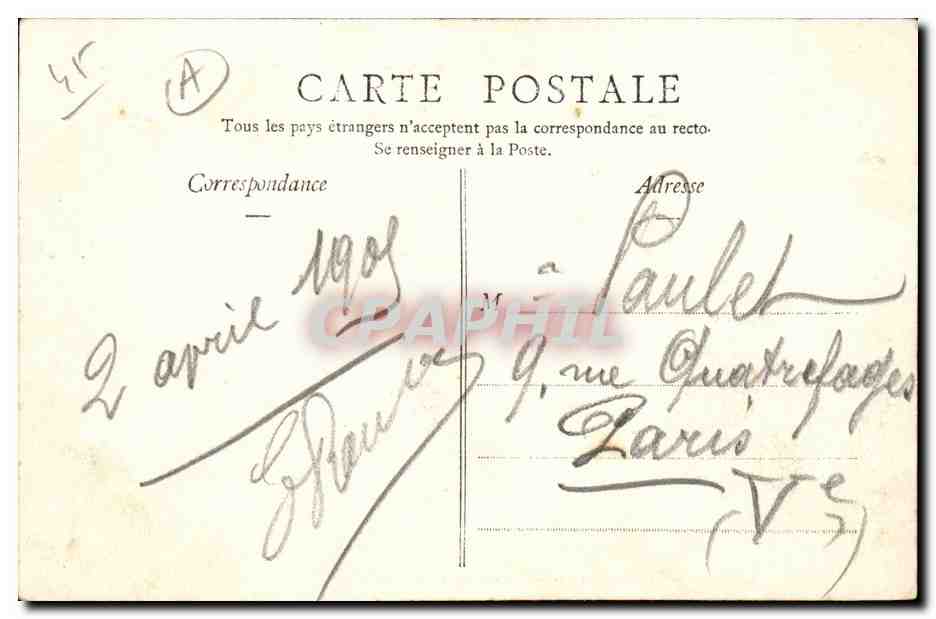 45
A
CARTE POSTALE
Tous les pays étrangers n'acceptent pas la correspondance au recto.
Se renseigner à la Poste.
Correspondance
2 avril 1905
Adresse
Mà Paulet
9, rue Quatrefages
Paris
(Ve)
CPAPHIL